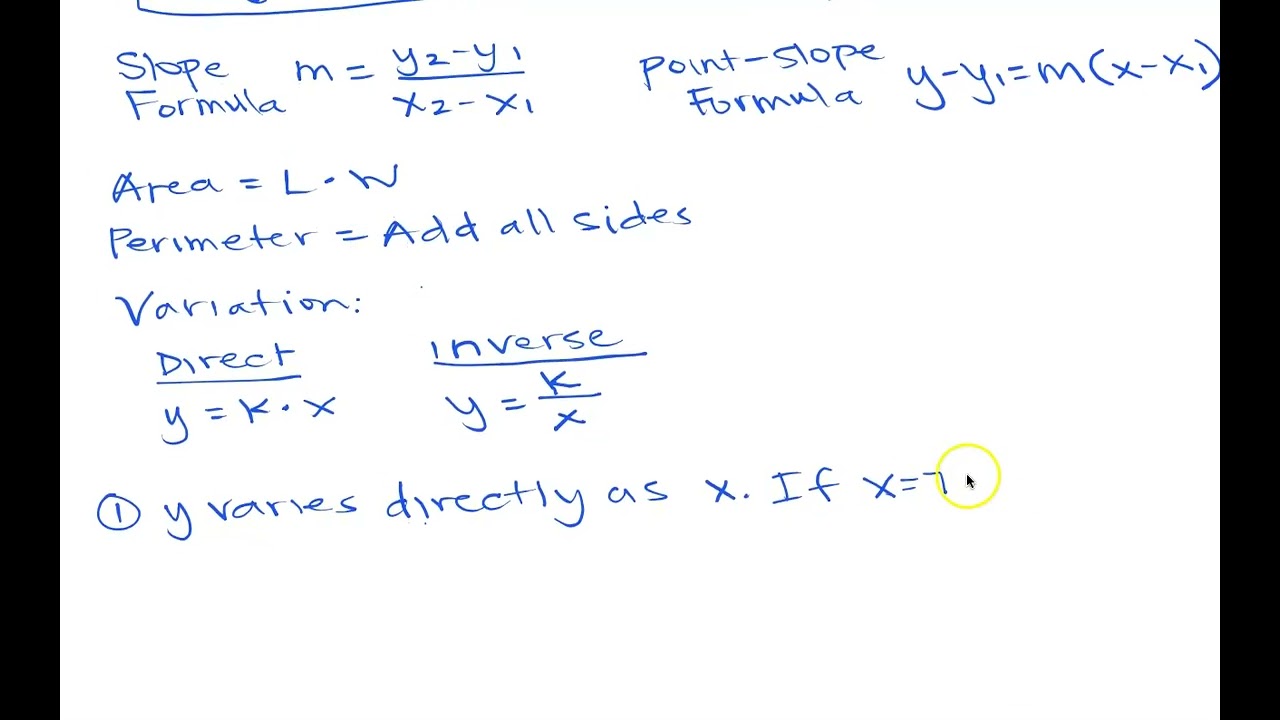 Slope Formula m = y₂-y₁ / x₂-x₁
Point-Slope Formula y-y₁=m(x-x₁)
Area = L·W
Perimeter = Add all sides
Variation:
Direct
y = K·x
Inverse
y = K/x
① y varies directly as x. If x=